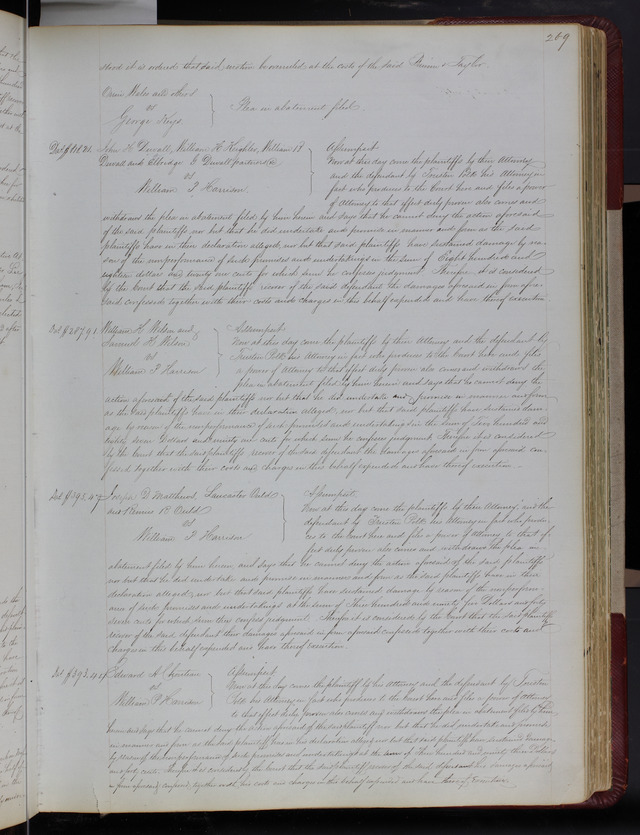 269
stood it is ordered that said motion be overruled at the costs of the said Taylor
Orrin Wales and others
vs
George Keys
Plea in abatement filed.
John H. Duvall, William H. Hughlos, William B
Duvall and Elbridge G Duvall partners &c
vs
William P. Harrison
Assumpsit
Now at this day came the plaintiffs by their Attorney
and the defendant by Trusten Polk his Attorney in
fact who produces to the Court here and files a power
of Attorney to that effect duly proven also comes and
withdraws the plea in abatement filed by him herein and says that he cannot deny the action aforesaid
of the said plaintiffs nor but that he did undertake and promise in manner and form as the said
plaintiffs have in their declaration alleged, nor but that said plaintiffs have sustained damage by rea-
son of the nonperformance of such promises and undertakings in the sum of Eight hundred and
eighteen dollars and twenty one cents for which sum he confesses judgment. Therefore it is considered
by the Court that the said plaintiffs recover of the said defendant the damages aforesaid in form afore-
said confessed together with their costs and charges in this behalf expended and have thereof execution
William H. Wilson and
Samuel H. Wilson
vs
William P Harrison
Assumpsit
Now at this day came the plaintiffs by their Attorney and the defendant by
Trusten Polk his Attorney in fact who produces to the Court here and files
a power of Attorney to that effect duly proven also comes and withdraws the
plea in abatement filed by him herein and says that he cannot deny the
action aforesaid of the said plaintiffs nor but that he did undertake and promise in manner and form
as the said plaintiffs have in their declaration alleged, nor but that said plaintiffs have sustained dam-
age by reason of the nonperformance of such promises and undertakings in the sum of hundred and
eighty seven Dollars and ninety one cents for which sum he confesses judgment Therefore it is considered
by the Court that the said plaintiffs recover of the said defendant the damages aforesaid in form aforesaid con-
fessed together with their costs and charges in their behalf expended and have thereof execution
Det $395.47
Joseph D. Matthews, Lancaster Ould
and Dennis R Ould
vs
William P Harrison
Assumpsit.
Now at this day came the plaintiffs by their Attorney and the
defendant by Trusten Polk his Attorney in fact who produ-
ces to the Court here and files a power of Attorney to that ef-
fect duly proven also comes and withdraws the plea in
abatement filed by him herein, and says that he cannot deny the action aforesaid of the said plaintiffs
nor but that he did undertake and promise in manner and form as the said plaintiffs have in their
declaration alleged, nor but that said plaintiffs have sustained damage by reason of the nonperform-
ance of such promises and undertakings in the sum of Three hundred and ninety five Dollars and forty
seven cents for which sum he confesses judgment. Therefore it is considered by the Court that the said plaintiffs
recover of the said defendant their damages aforesaid in form aforesaid confessed together with their costs and
charges in this behalf expended and have thereof execution
Edward A Christian
vs
William P Harrison
Assumpsit
Now at this day comes the plaintiff by his Attorney and the defendant by Trusten
Polk his Attorney in fact who produces to the Court here and files a power of Attorney
to that effect duly proven also comes and withdraws the plea in abatement filed by him
herein and says that he cannot deny the action aforesaid of the said plaintiff nor but that he did undertake and promise
in manner and form as the said plaintiff has in his declaration alleged nor but that said plaintiff has sustained damage
by reason of the nonperformance of such promises and undertakings in the sum of Three hundred and ninety three Dollars
and forty cents. Therefore it is considered by the Court that the said plaintiff recover of the said defendant his damages aforesaid
in form aforesaid confessed together with his costs and charges in this behalf expended and have thereof Execution